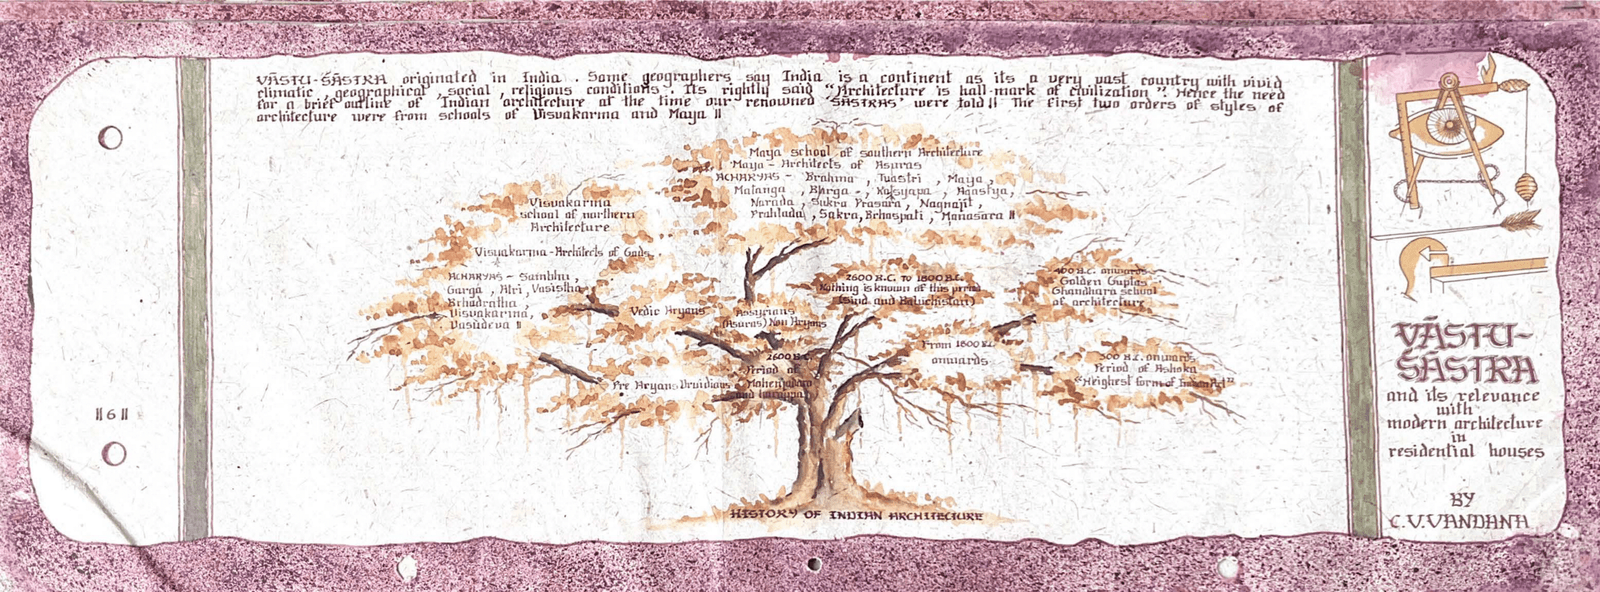 VĀSTU-ŚĀSTRA originated in India . Some geographers say India is a continent as its a very vast country with vivid
climatic , geographical , social , religious conditions . Its rightly said "Architecture is hall-mark of civilization". Hence the need
for a brief outline of Indian architecture at the time our renowned 'SĀSTRAS' were told || The first two orders of styles of
architecture were from schools of Visvakarma and Maya ||
Maya school of southern Architecture
Maya - Architects of Asuras
ACHARYAS - Brahma , Tvastri , Maya ,
Matanga , Bhrga , Kasyapa , Agastya,
Narada , Sukra Prasara , Nagnajit ,
Prahlada , Sakra, Brhaspati , Manasara ||
Visvakarma
school of northern
Architecture
Visvakarma-Architects of Gods.
ACHARYAS - Sambhu ,
Garga , Atri , Vasistha
Brhadratha
Visvakarma,
Vasudeva ||
Vedic Aryans
Assyrians
(Asuras) Non Aryans
2600 B.C. to 1800 B.C.
Nothing is known of this period
(Sind and Baluchistan)
400 B.C. onwards
Golden Guptas
Ghandhara school
of architecture
From 1800 B.C.
onwards
300 B.C. onwards
Period of Ashoka
"Heighest form of Indian Art"
2600 B.C.
Period of
Mohenjadaro
and harappa
Pre Aryans Druidious
HISTORY OF INDIAN ARCHITECTURE
||6||
VĀSTU-
ŚĀSTRA
and its relevance
with
modern architecture
in
residential houses
BY
C.V.VANDANA